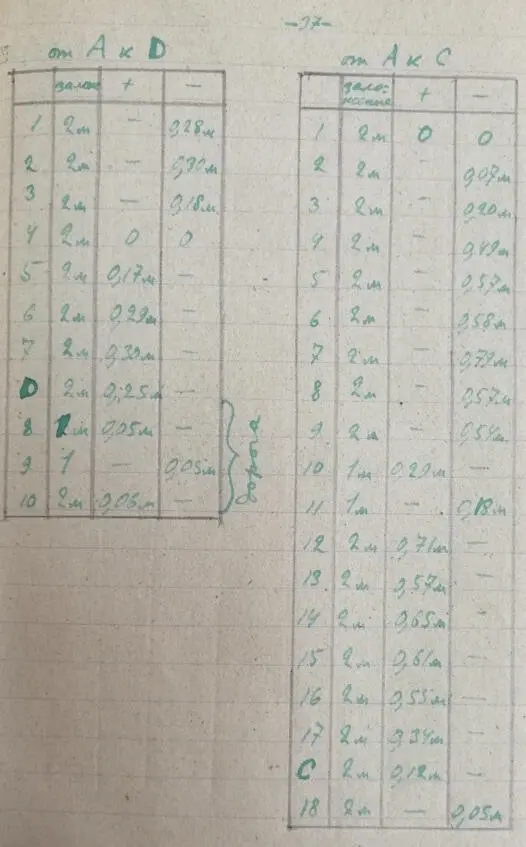 -37-
от А к D
залож + -
1 2м - 0,28м
2 2м - 0,30м
3 2м - 0,18м
4 2м 0 0
5 2м 0,17м -
6 2м 0,29м -
7 2м 0,39м -
D 2м 0,25м -
8 1м 0,05м -
9 1 - 0,05м
10 2м 0,06м -
дорога
от А к С
зало-
жение + -
1 2м 0 0
2 2м - 0,07м
3 2м - 0,20м
4 2м - 0,49м
5 2м - 0,57м
6 2м - 0,58м
7 2м - 0,79м
8 2м - 0,57м
9 2м - 0,54м
10 1м 0,29м -
11 1м - 0,18м
12 2м 0,71м -
13 2м 0,57м -
14 2м 0,65м -
15 2м 0,61м -
16 2м 0,55м -
17 2м 0,34м -
С 2м 0,12м -
18 2м - 0,05м